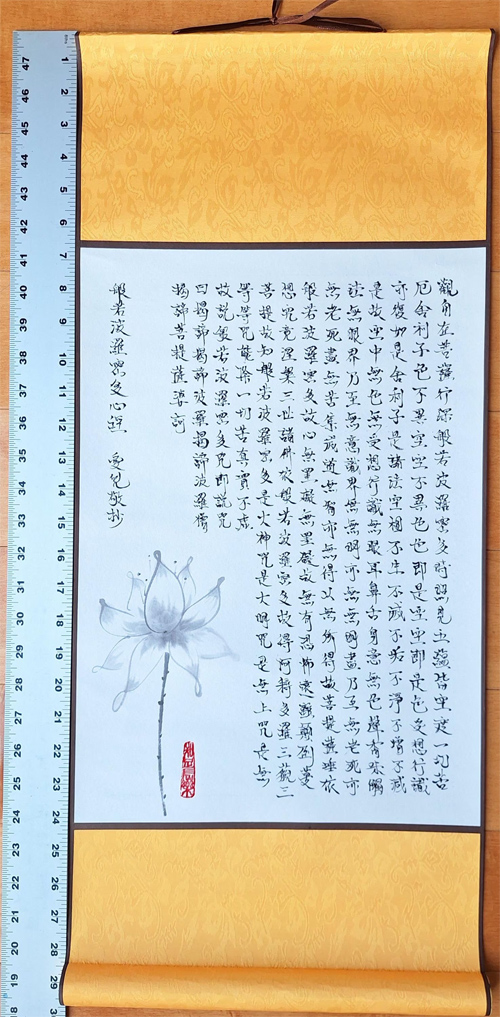 觀自在菩薩行深般若波羅蜜多時照見五蘊皆空度一切苦
厄舍利子色不異空空不異色色即是空空即是色受想行識
亦復如是舍利子是諸法空相不生不滅不垢不淨不增不減
是故空中無色無受想行識無眼耳鼻舌身意無色聲香味觸
法無眼界乃至無意識界無無明亦無無明盡乃至無老死亦
無老死盡無苦集滅道無智亦無得以無所得故菩提薩埵依
般若波羅蜜多故心無罣礙無罣礙故無有恐怖遠離顛倒夢
想究竟涅槃三世諸佛依般若波羅蜜多故得阿耨多羅三藐三
菩提故知般若波羅蜜多是大神咒是大明咒是無上咒是無
等等咒能除一切苦真實不虛
故說般若波羅蜜多咒即說咒
曰揭諦揭諦波羅揭諦波羅僧
揭諦菩提薩婆訶
般若波羅蜜多心經 愛兒敬抄
1 2 3 4 5 6 7 8 9 10 11 12 13 14 15 16 17 18 19 20 21 22 23 24 25 26 27 28 29
47 46 45 44 43 42 41 40 39 38 37 36 35 34 33 32 31 30 29 28 27 26 25 24 23 22 21 20 19 18